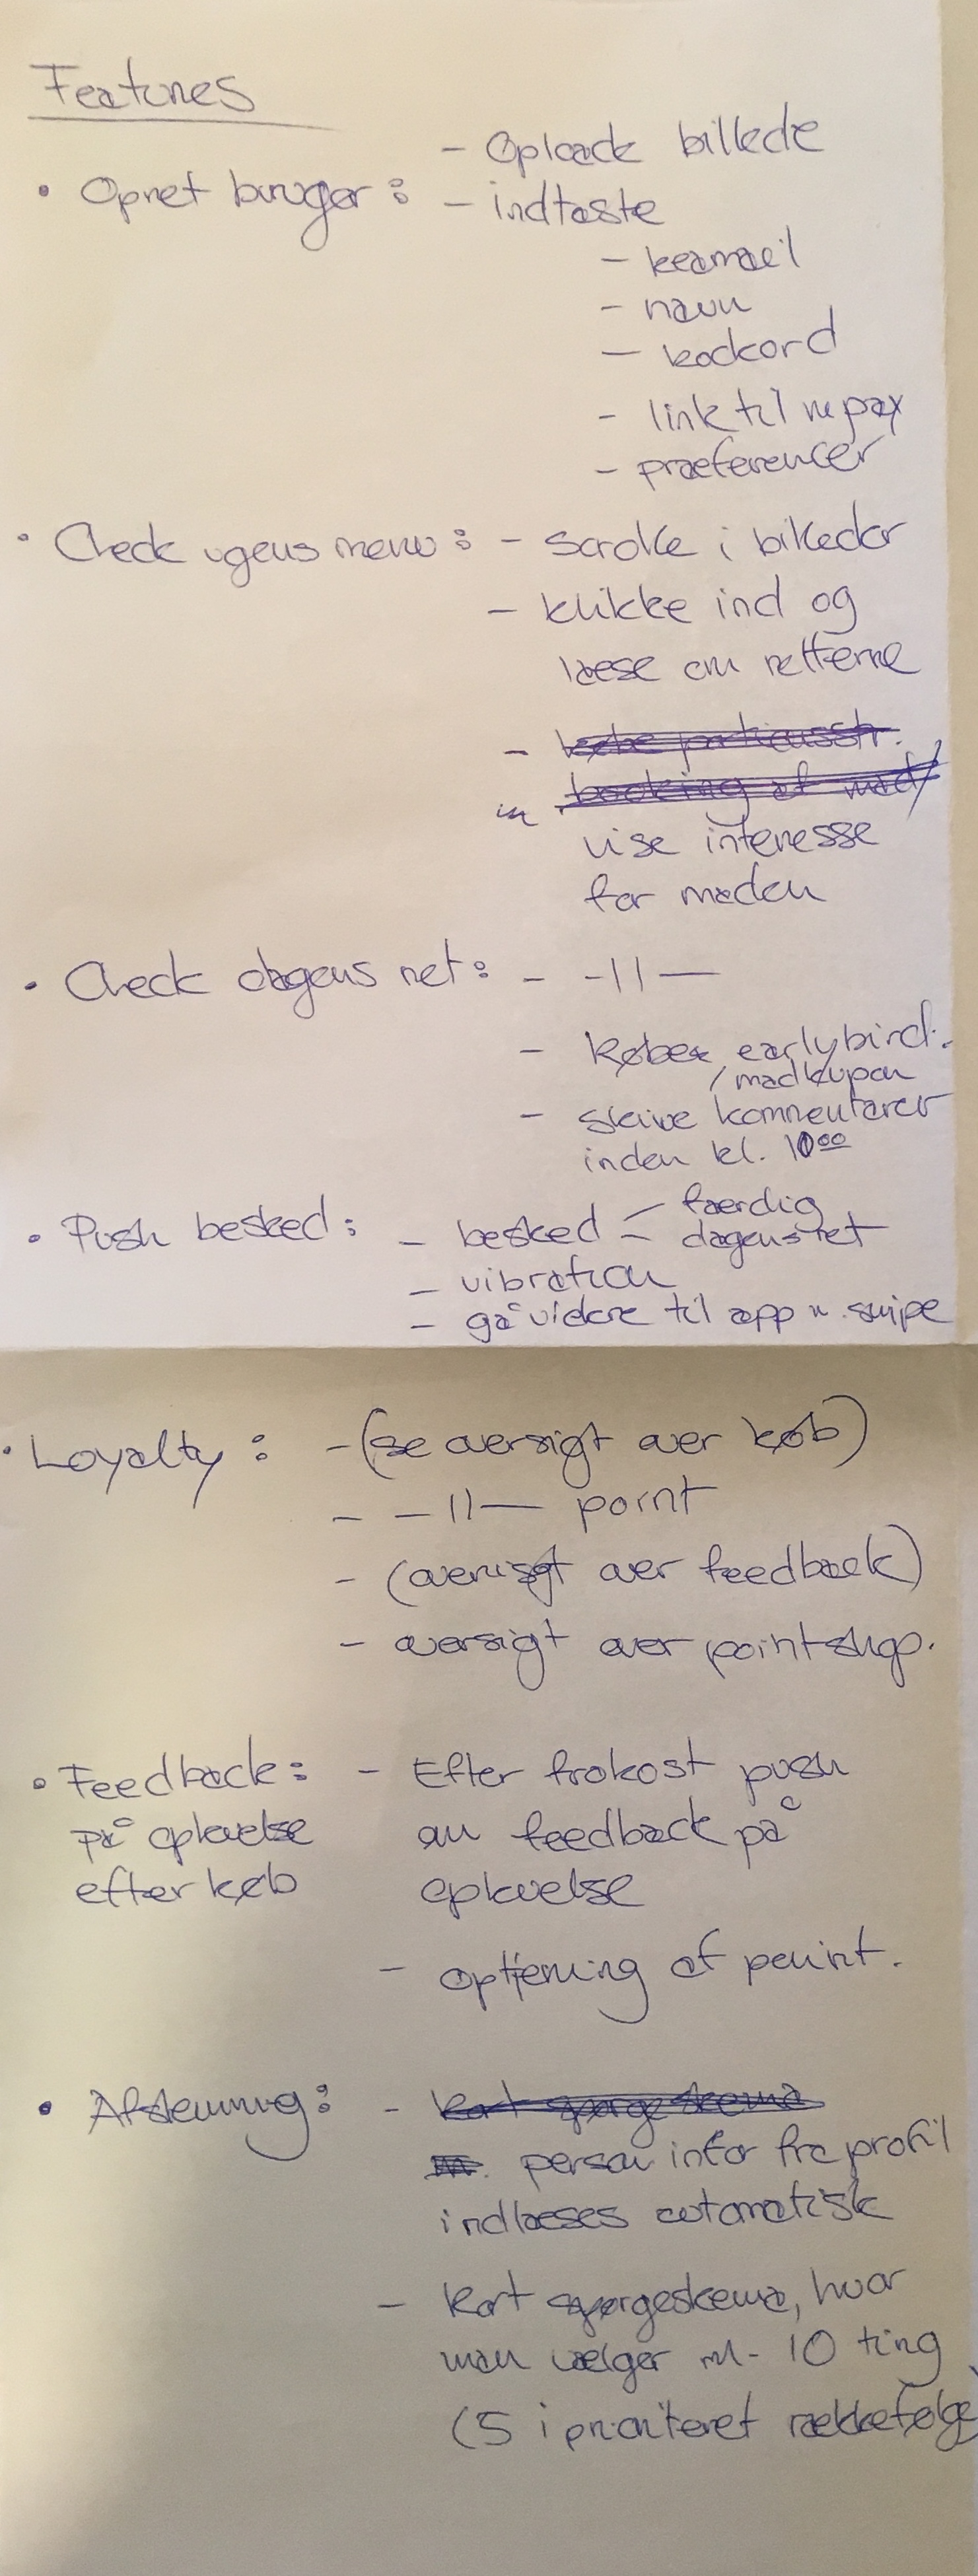 Features
- Oploade billede
• Opret bruger: - indtaste
- keamail
- navn
- kodeord
- link til mepay
- præferencer
• Check ugens menu: - scrolle i billeder
- klikke ind og
læse om retterne
-
booking af mad/
vise interesse
for maden
• Check dagens ret: - -11-
- Købe earlybird.
/madkupon
- skrive kommentarer
inden kl. 1000
• Push besked: - besked - færdig
- dagens ret
- vibration
- gå videre til app v. swipe
• Loyalty: - (se oversigt over køb)
- -11- point
- (oversigt over feedback)
- oversigt over pointshop.
• Feedback: - Efter frokost push
på oplevelse om feedback på
efter køb oplevelse
- optjening af point.
• Afstemning: - Kort spørgeskema
person infor fra profil
indlæses automatisk
- Kort spørgeskema, hvor
man vælger ml. 10 ting
(5 i prioriteret rækkefølge